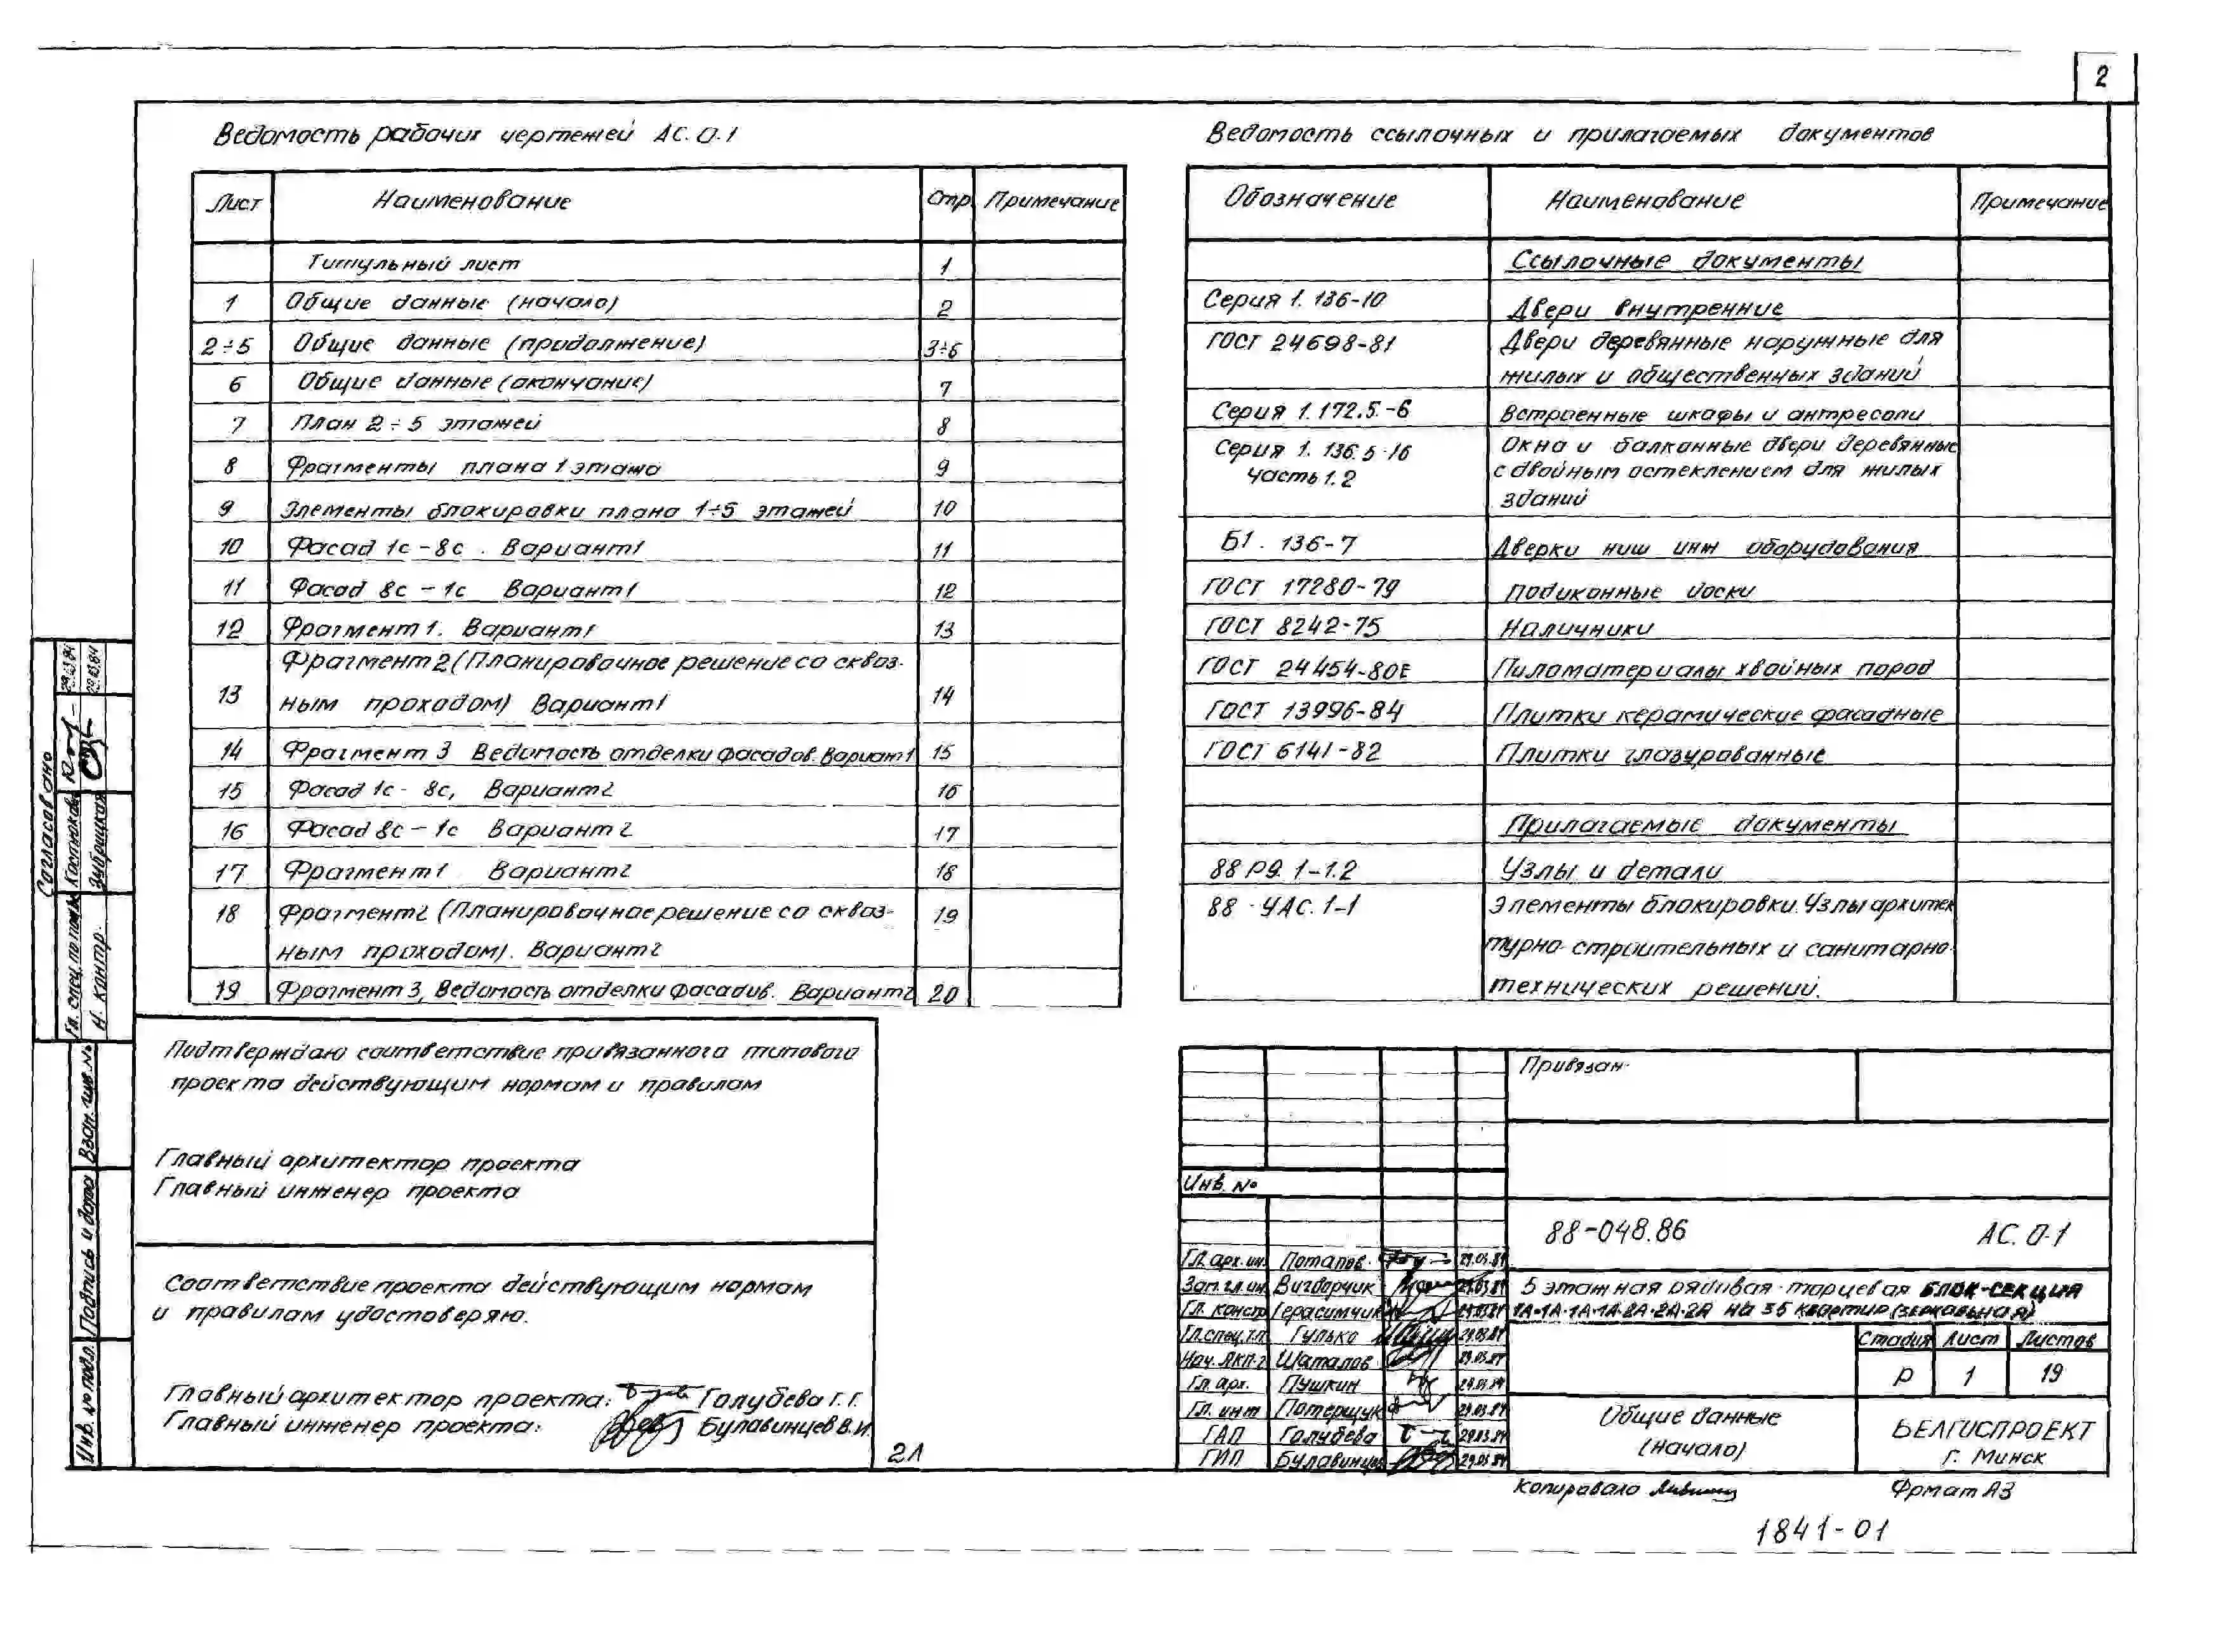 2
Ведомость рабочих чертежей АС.0-1
Лист Наименование Стр. Примечание
Титульный лист 1
1 Общие данные (начало) 2
2÷5 Общие данные (продолжение) 3÷6
6 Общие данные (окончание) 7
7 План 2÷5 этажей 8
8 Фрагменты плана 1 этажа 9
9 Элементы блокировки плана 1÷5 этажей 10
10 Фасад 1с-8с. Вариант 1 11
11 Фасад 8с-1с Вариант 1 12
12 Фрагмент 1. Вариант 1 13
13 Фрагмент 2 (Планировочное решение со сквоз-
ным проходом) Вариант 1 14
14 Фрагмент 3 Ведомость отделки фасадов. Вариант 1 15
15 Фасад 1с-8с, Вариант 2 16
16 Фасад 8с-1с Вариант 2 17
17 Фрагмент 1 Вариант 2 18
18 Фрагмент 2 (Планировочное решение со сквоз- 19
ным проходом). Вариант 2
19 Фрагмент 3, Ведомость отделки фасадов. Вариант 2 20
Ведомость ссылочных и прилагаемых документов
Обозначение Наименование Примечание
Ссылочные документы
Серия 1.136-10 Двери внутренние
ГОСТ 24698-81 Двери деревянные наружные для
жилых и общественных зданий
Серия 1.172.5-6 Встроенные шкафы и антресоли
Серия 1.136.5-16 Окна и балконные двери деревянные
часть 1.2 с двойным остеклением для жилых
зданий
Б1.136-7 Дверки ниш инж оборудования
ГОСТ 17280-79 Подиконные доски
ГОСТ 8242-75 Наличники
ГОСТ 24454-80Е Пиломатериалы хвойных пород
ГОСТ 13996-84 Плитки керамические фасадные
ГОСТ 6141-82 Плитки глазурованные
Прилагаемые документы
88 РД. 1-1.2 Узлы и детали
88-УАС.1-1 Элементы блокировки. Узлы архитек
турно-строительных и санитарно-
технических решений.
Согласовано
Гл. спец. по пож. Костюкова 29.03.84
Н. контр. Зубрицкая 29.03.84
Взам. инв. №
Подпись и дата
Инв. № подл.
Подтверждаю соответствие привязанного типового
проекта действующим нормам и правилам
Главный архитектор проекта
Главный инженер проекта
Соответствие проекта действующим нормам
и правилам удостоверяю.
Главный архитектор проекта: Голубева Г.Г.
Главный инженер проекта: Булавинцев В.И.
2Л
Привязан
Инв. №
88-048.86 АС.0-1
Гл. арх. ин. Потапов 29.03.84
Зам. гл. ин. Вигдорчик 29.03.84
Гл. констр Герасимчик 29.03.84
Гл. спец. т.п. Гулько 29.03.84
Нач. АКП-2 Шаталов 29.03.84
Гл. арх. Пушкин 29.03.84
Гл. инж Потерщук 29.03.84
ГАП Голубева 29.03.84
ГИП Булавинцев 29.03.84
5 этажная рядовая-торцевая БЛОК-СЕКЦИЯ
1А-1А-1А-1А-2А-2А-2А на 35 квартир (зеркальная)
Стадия Лист Листов
Р 1 19
Общие данные
(начало)
БЕЛГИСПРОЕКТ
г. Минск
Копировала
Фрмат А3
1841-01